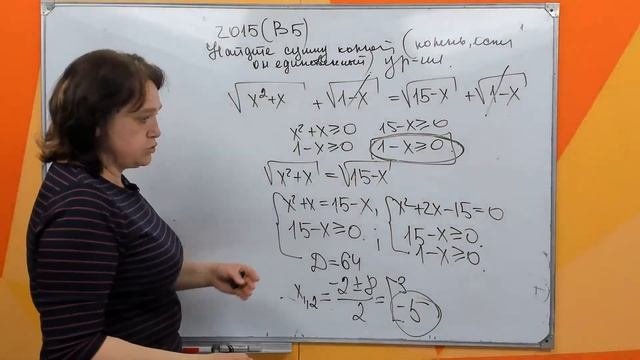 2015(В5)
Найдите сумму корней (корень, если
он единственный) ур-ния.
√x²+x + √1-x = √15-x + √1-x
x²+x≥0 15-x≥0
1-x≥0 1-x≥0
√x²+x = √15-x
{x²+x=15-x, {x²+2x-15=0
15-x≥0. ; 15-x≥0.
1-x≥0.
D=64
x₁,₂ = (-2±8)/2 = [3
-5